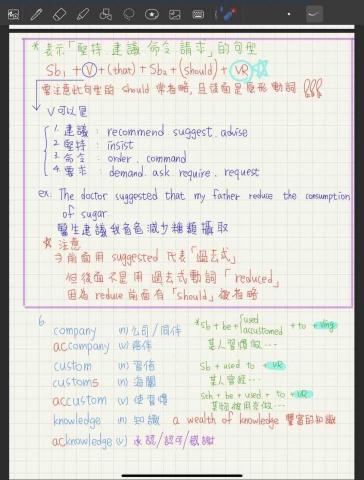 *表示「堅持.建議.命令.請求」的句型
Sb1 + V + (that) + Sb2 + (should) + VR
要注意此句型的 should 常省略,且後面是原形動詞 !!!
V可以是
1. 建議: recommend suggest. advise
2. 堅持: insist
3. 命令: order. command
4. 要求: demand. ask require. request
ex: The doctor suggested that my father reduce the consumption
of sugar.
醫生建議我爸爸減少糖類攝取
注意
前面用 suggested 代表「過去式」
但後面不是用過去式動詞「reduced」
因為 reduce 前面有「should」被省略
6.
company n) 公司/同伴
*Sb + be + {used accustomed + to + Ving
accompany v) 陪伴
某人習慣做…
custom n) 習俗
Sb + used to + VR
customs n) 海關
某人曾經…
accustom v) 使習慣
Sth + be + used + to + VR
某物被用來做…
knowledge n) 知識 a wealth of knowledge 豐富的知識
acknowledge v) 承認/認可/感謝